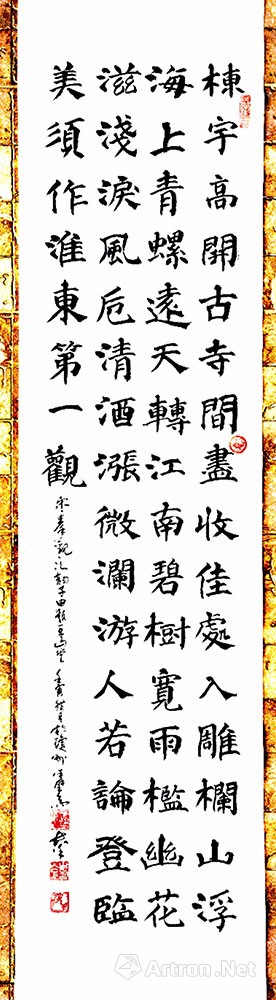 棟宇高開古寺間盡收佳處入雕欄山浮
海上青螺遠天轉江南碧樹寬雨檻幽花
滋淺淚風卮清酒漲微瀾游人若論登臨
美須作淮東第一觀
宋秦觀次韵子由題平山堂
Artron.Net